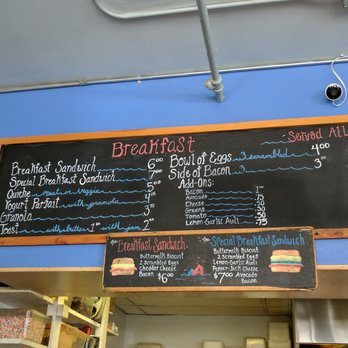 Breakfast
Served All
Breakfast Sandwich 6.00
Special Breakfast Sandwich 7.00
Quiche meat or veggie 5.00
Yogurt Parfait with granola
Granola
Toast with butter with jam 2
Bowl of Eggs 3 scrambled 4.00
Side of Bacon 3 3.00
Add-Ons:
Bacon
Avocado
Cheese
Greens
Tomato
Lemon-Garlic Aioli .75
the Breakfast Sandwich
Buttermilk Biscuit
2 Scrambled Eggs
Cheddar Cheese
Bacon
$6.00
the Special Breakfast Sandwich
Buttermilk Biscuit
2 Scrambled Eggs
Lemon-Garlic Aioli
Pepper-Jack Cheese
Avocado
Bacon
$7.00